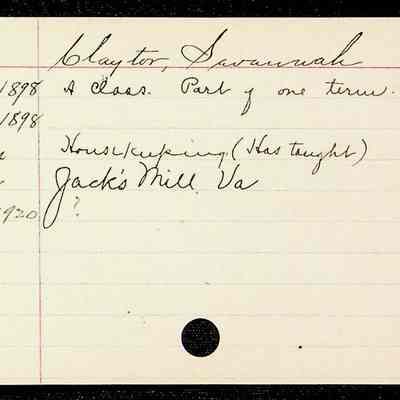 Claytor, Savannah
1898 A Class. Part of one term.
1898
Housekeeping (Has taught)
Jack's Mill Va
1920 ?